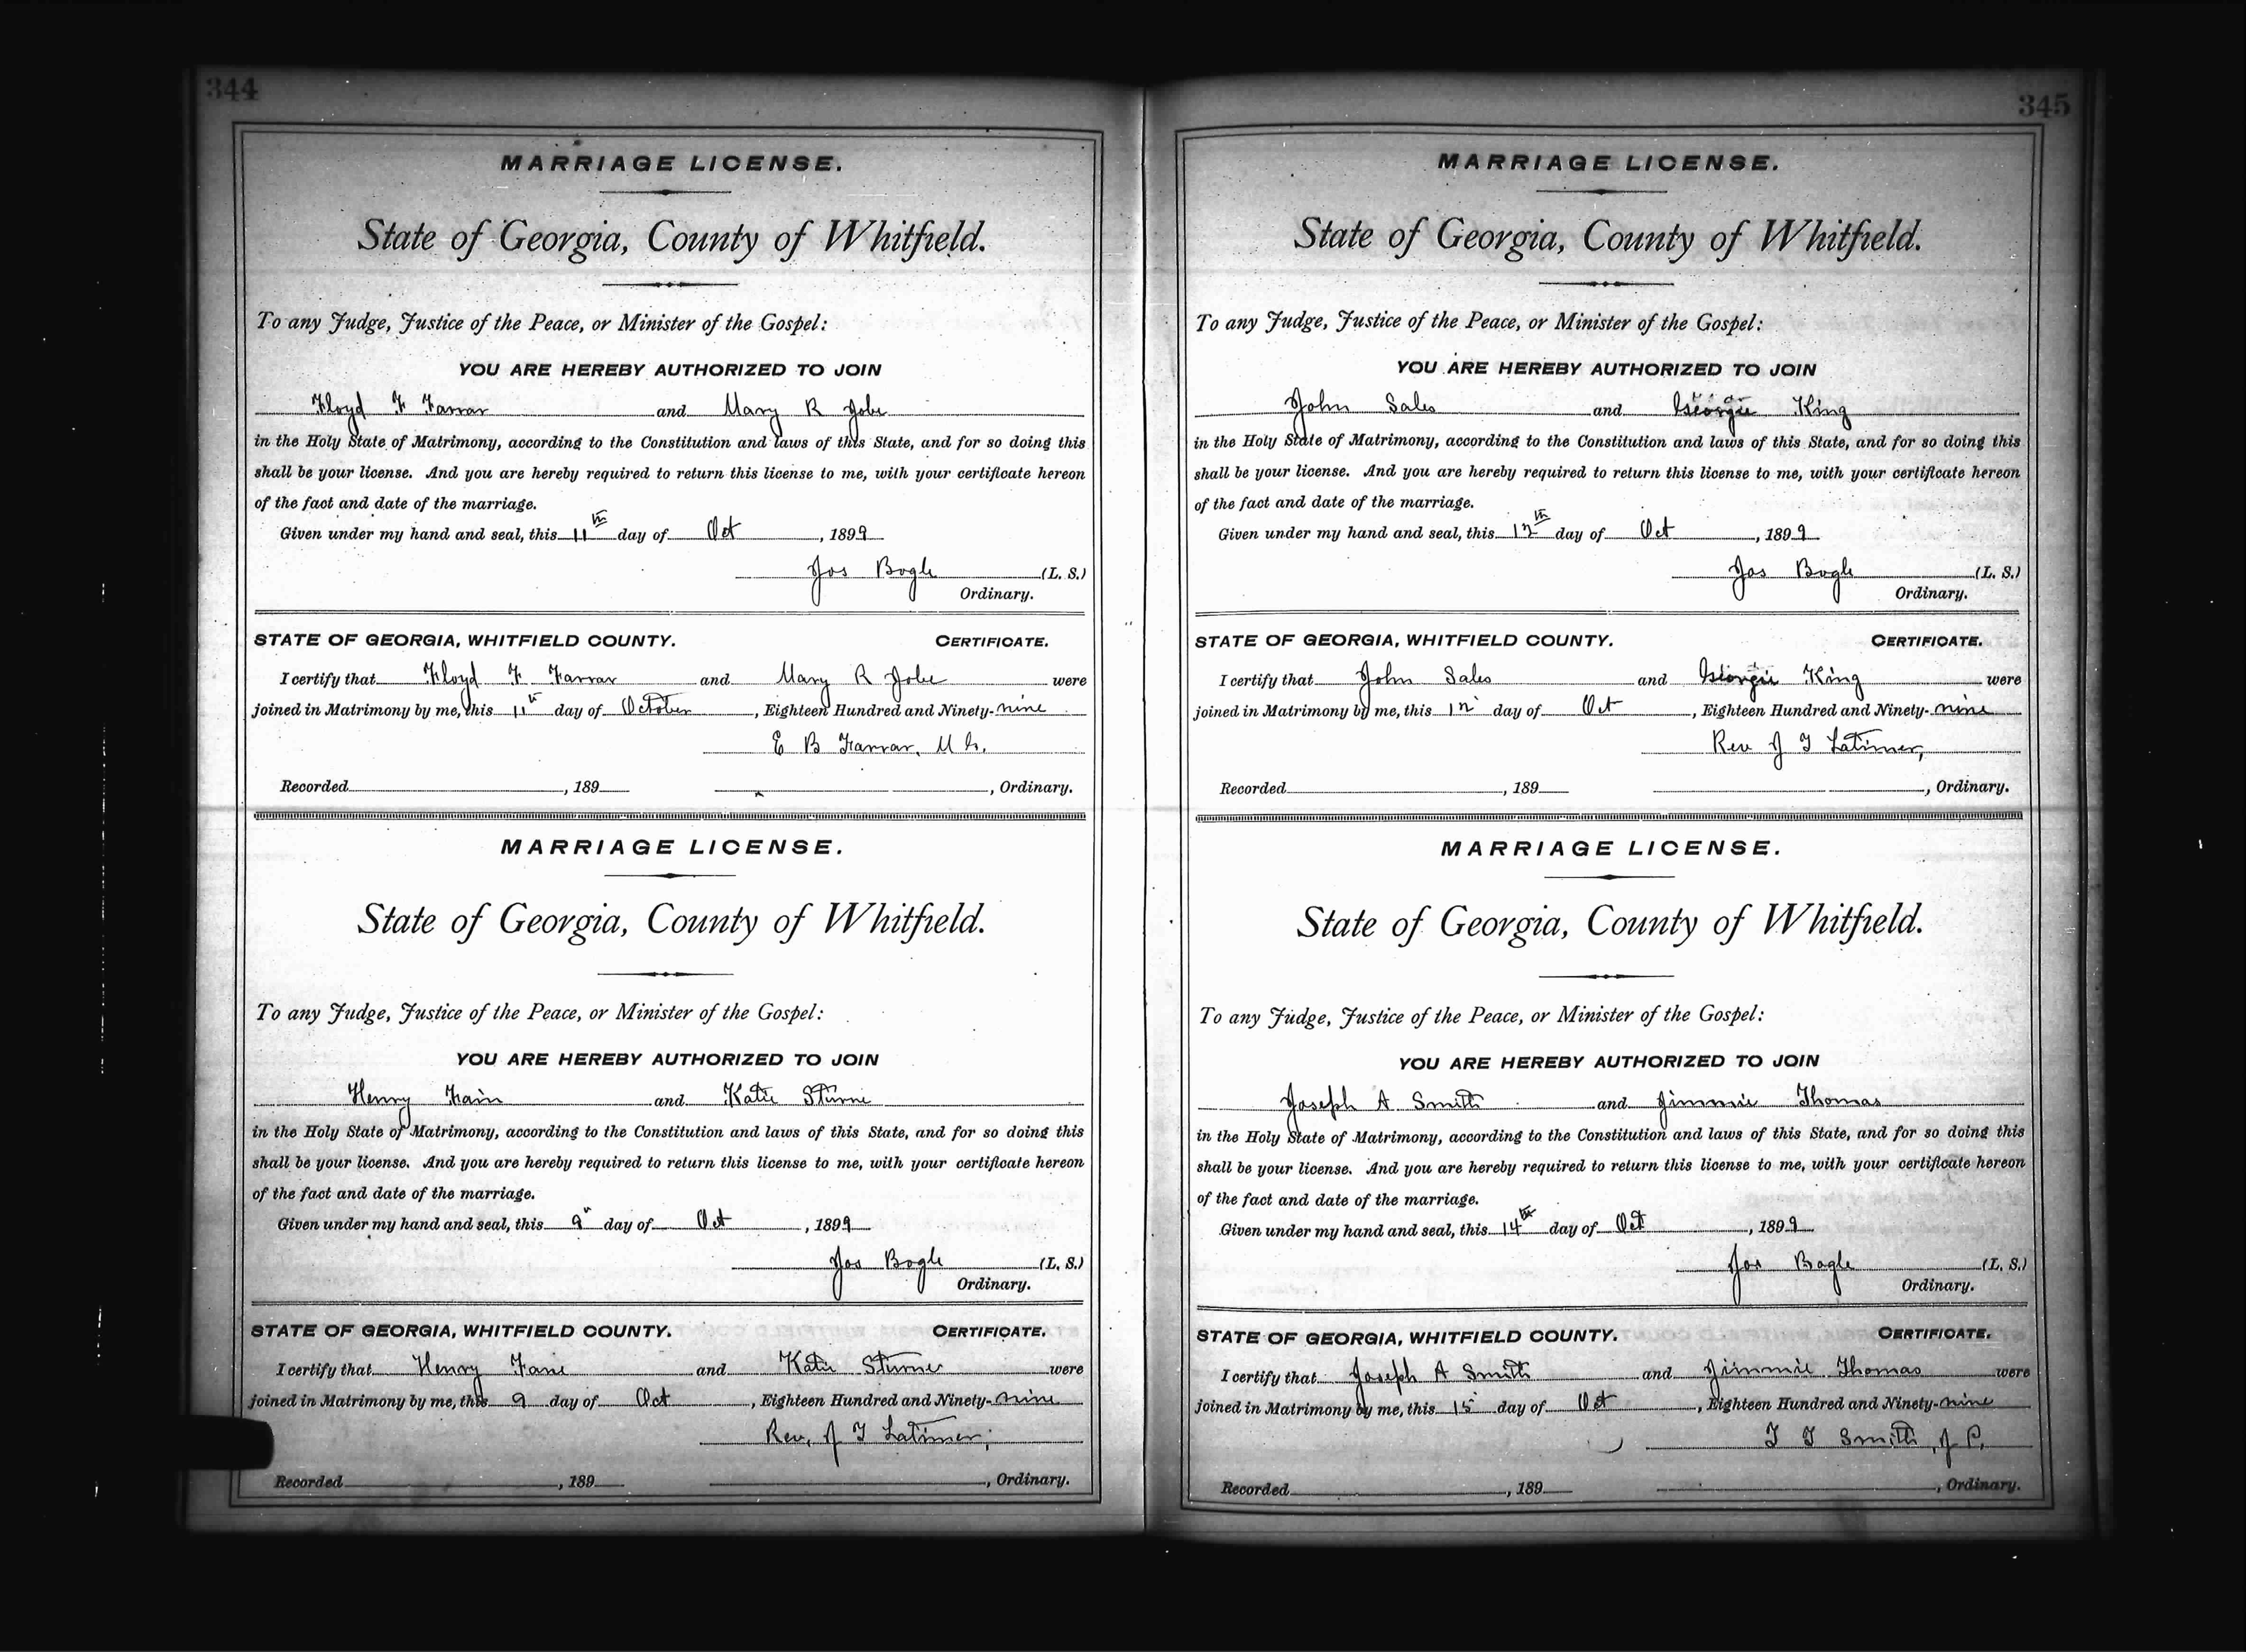 344
MARRIAGE LICENSE.
State of Georgia, County of Whitfield.
To any Judge, Justice of the Peace, or Minister of the Gospel:
YOU ARE HEREBY AUTHORIZED TO JOIN
Floyd F Farrar and Mary R Jobe
in the Holy State of Matrimony, according to the Constitution and laws of this State, and for so doing this
shall be your license. And you are hereby required to return this license to me, with your certificate hereon
of the fact and date of the marriage.
Given under my hand and seal, this 11th day of Oct, 1899
Jos Bogle (L. S.)
Ordinary.
STATE OF GEORGIA, WHITFIELD COUNTY. CERTIFICATE.
I certify that Floyd F Farrar and Mary R Jobe were
joined in Matrimony by me, this 11th day of October, Eighteen Hundred and Ninety-nine
E B Farrar, M G.
Recorded, 189, Ordinary.
MARRIAGE LICENSE.
State of Georgia, County of Whitfield.
To any Judge, Justice of the Peace, or Minister of the Gospel:
YOU ARE HEREBY AUTHORIZED TO JOIN
Henry Fain and Katie
in the Holy State of Matrimony, according to the Constitution and laws of this State, and for so doing this
shall be your license. And you are hereby required to return this license to me, with your certificate hereon
of the fact and date of the marriage.
Given under my hand and seal, this 9th day of Oct, 1899
Jos Bogle (L. S.)
Ordinary.
STATE OF GEORGIA, WHITFIELD COUNTY. CERTIFICATE.
I certify that Henry Fane and Katie were
joined in Matrimony by me, this 9 day of Oct, Eighteen Hundred and Ninety-nine
Rev. J T Latimer,
Recorded, 189, Ordinary.
345
MARRIAGE LICENSE.
State of Georgia, County of Whitfield.
To any Judge, Justice of the Peace, or Minister of the Gospel:
YOU ARE HEREBY AUTHORIZED TO JOIN
John Sales and Georgie King
in the Holy State of Matrimony, according to the Constitution and laws of this State, and for so doing this
shall be your license. And you are hereby required to return this license to me, with your certificate hereon
of the fact and date of the marriage.
Given under my hand and seal, this 12th day of Oct, 1899
Jos Bogle (L. S.)
Ordinary.
STATE OF GEORGIA, WHITFIELD COUNTY. CERTIFICATE.
I certify that John Sales and Georgie King were
joined in Matrimony by me, this 12 day of Oct, Eighteen Hundred and Ninety-nine
Rev J T Latimer,
Recorded, 189, Ordinary.
MARRIAGE LICENSE.
State of Georgia, County of Whitfield.
To any Judge, Justice of the Peace, or Minister of the Gospel:
YOU ARE HEREBY AUTHORIZED TO JOIN
Joseph A Smith and Jimmie Thomas
in the Holy State of Matrimony, according to the Constitution and laws of this State, and for so doing this
shall be your license. And you are hereby required to return this license to me, with your certificate hereon
of the fact and date of the marriage.
Given under my hand and seal, this 14th day of Oct, 1899
Jos Bogle (L. S.)
Ordinary.
STATE OF GEORGIA, WHITFIELD COUNTY. CERTIFICATE.
I certify that Joseph A Smith and Jimmie Thomas were
joined in Matrimony by me, this 15 day of Oct, Eighteen Hundred and Ninety-nine
T T Smith, J P.
Recorded, 189, Ordinary.